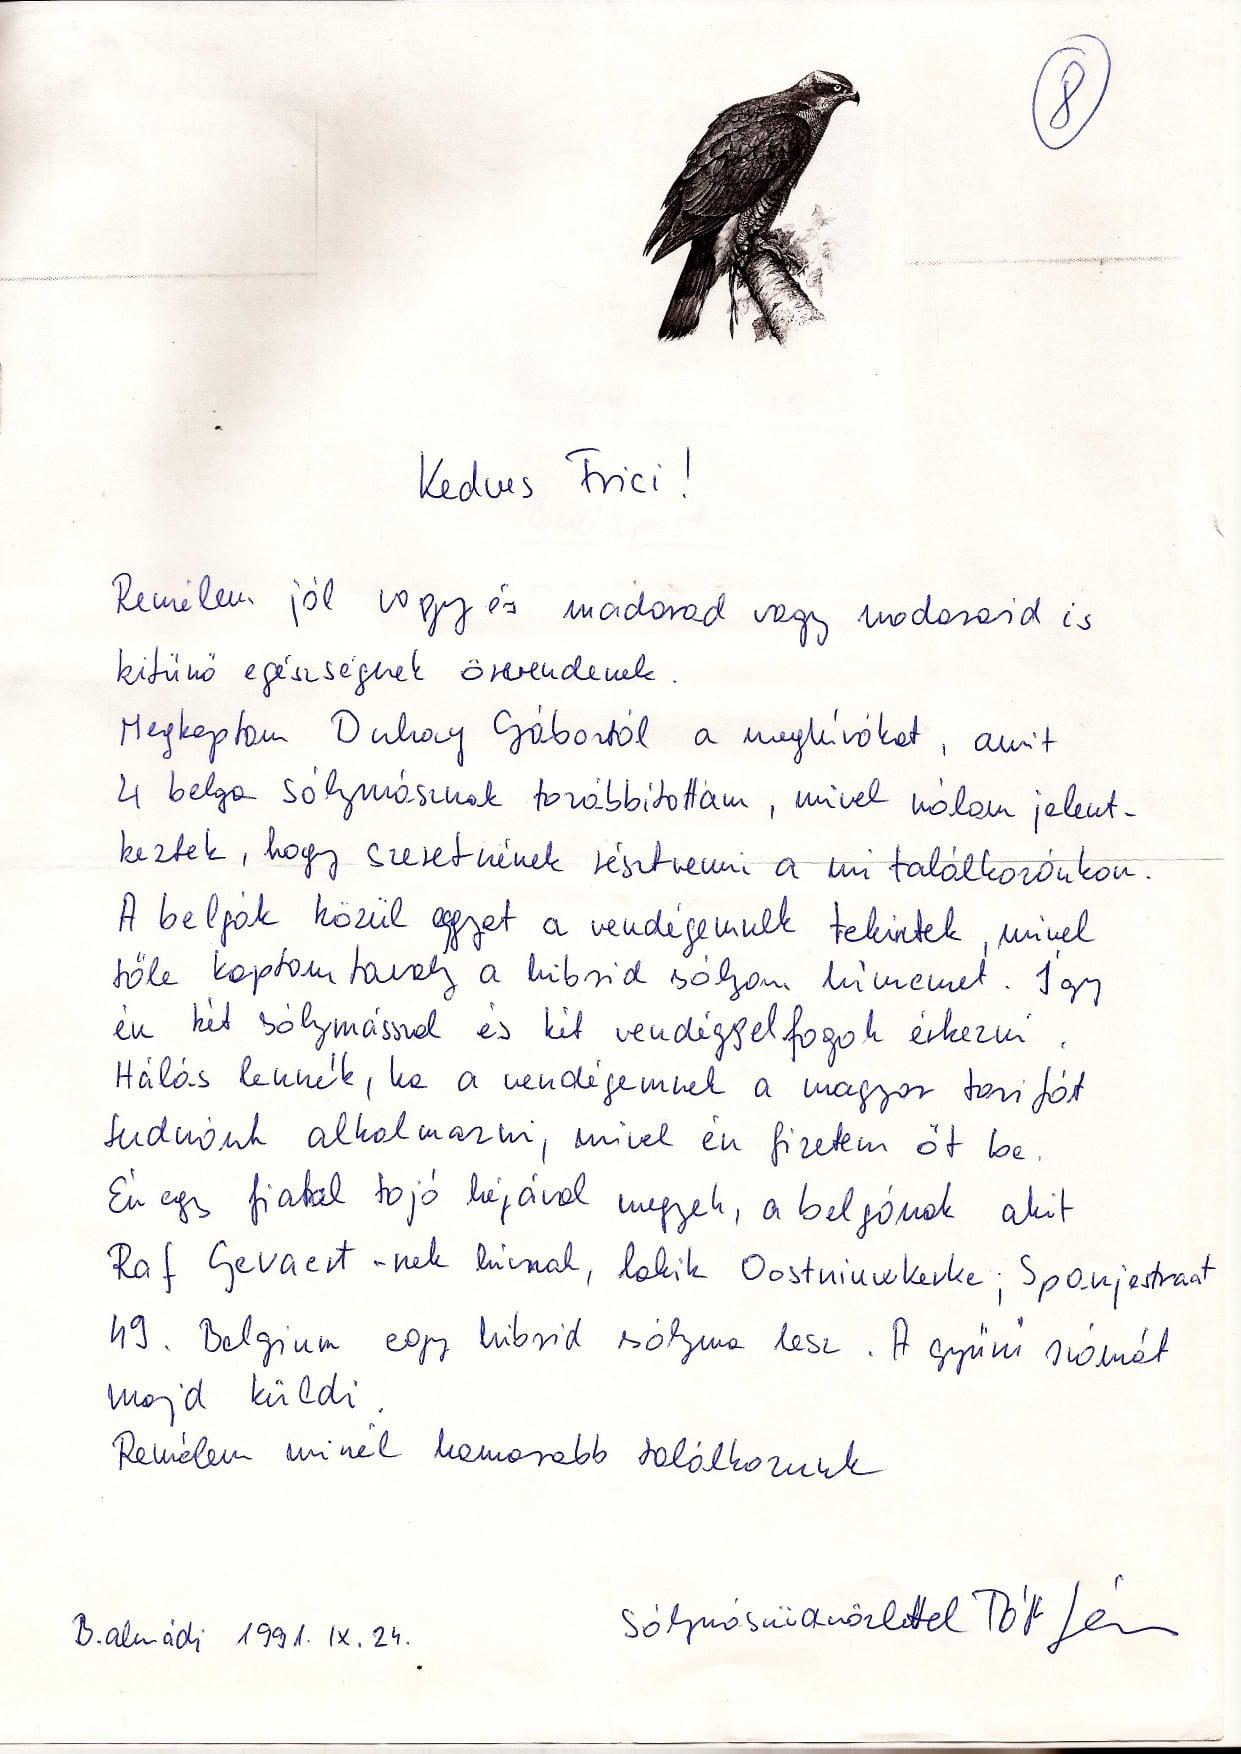 8
Kedves Frici!
Remélem jól vagy és madarad vagy madaraid is
kitünö egészségnek örvendenek.
Megkaptam Duhay Gábortól a meghívókat, amit
4 belga sólymásznak továbbítottam, mivel nálam jelent-
keztek, hogy szeretnének résztvenni a mi találkozónkon.
A belgák közül egyet a vendégemnek tekintek, mivel
tőle kaptam tavaly a hibrid sólyom hímemet. Így
én két sólymásszal és két vendéggel fogok érkezni.
Hálás lennék, ha a vendégemnek a magyar tarifát
tudnánk alkalmazni, mivel én fizetem öt be.
Én egy fiatal tojó héjával megyek, a belgának akit
Raf Gevaert-nek hívnak, lakik Oostnieuwkerke, Spanjestraat
49. Belgium egy hibrid sólyma lesz. A gyürü számát
majd küldi.
Remélem minél hamarabb találkozunk
B.almádi 1991. IX. 24.
Sólymászüdvözlettel Tóth